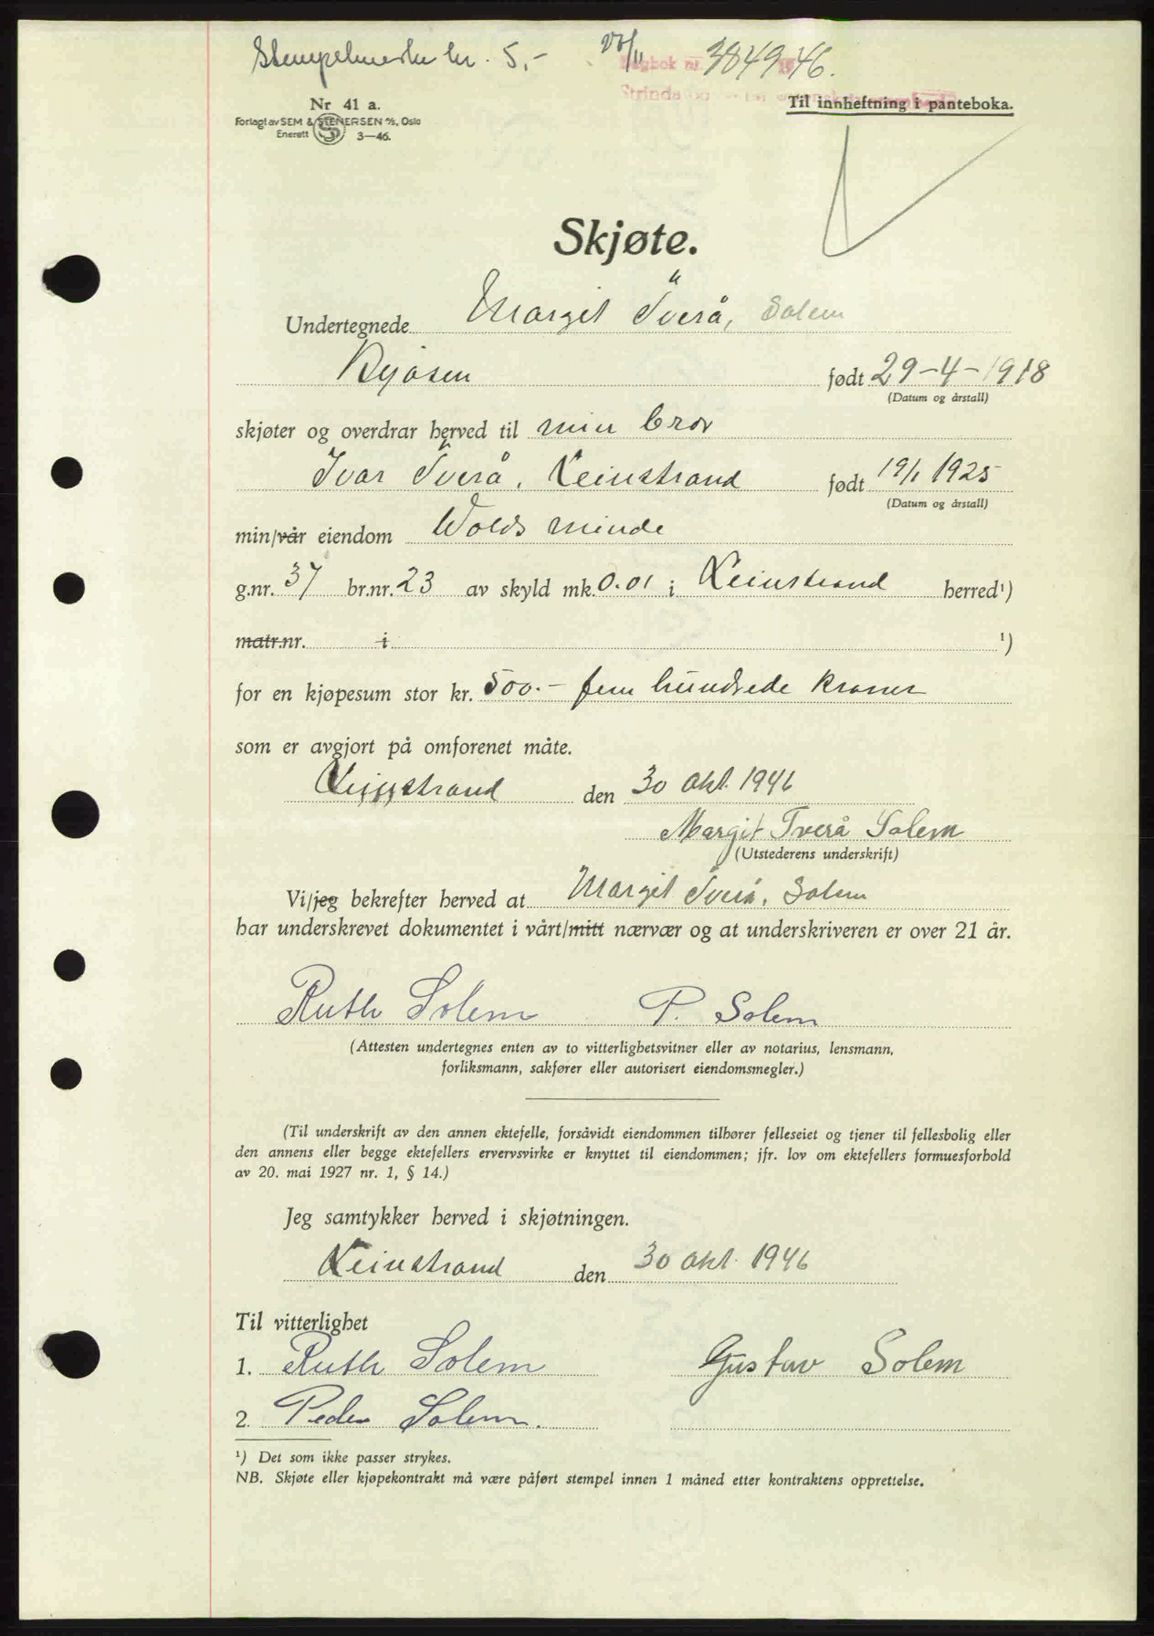 Stempelmerke kr. 5,-
Dagbok nr. 3849 1946.
Strinda
Nr 41 a.
Forlagt av SEM & STENERSEN A/S, Oslo
Enerett 3—46.
Til innheftning i panteboka.
Skjøte.
Undertegnede Margit Tverå, Solem
født 29-4-1918
(Datum og årstall)
skjøter og overdrar herved til min bror
Ivar Tverå, Leinstrand født 19/1 1925
(Datum og årstall)
min/vår eiendom Wolds minde
g.nr. 37 br.nr. 23 av skyld mk. 0.01 i Leinstrand herred¹)
matr.nr. i ¹)
for en kjøpesum stor kr. 500.- fem hundrede kroner
som er avgjort på omforenet måte.
Leinstrand den 30 okt. 1946
Margit Tverå Solem
(Utstederens underskrift)
Vi/jeg bekrefter herved at Margit Tverå, Solem
har underskrevet dokumentet i vårt/mitt nærvær og at underskriveren er over 21 år.
Ruth Solem P. Solem
(Attesten undertegnes enten av to vitterlighetsvitner eller av notarius, lensmann,
forliksmann, sakfører eller autorisert eiendomsmegler.)
(Til underskrift av den annen ektefelle, forsåvidt eiendommen tilhører felleseiet og tjener til fellesbolig eller
den annens eller begge ektefellers ervervsvirke er knyttet til eiendommen; jfr. lov om ektefellers formuesforhold
av 20. mai 1927 nr. 1, § 14.)
Jeg samtykker herved i skjøtningen.
Leinstrand den 30 okt. 1946
Til vitterlighet
1. Ruth Solem Gustav Solem
2. Peder Solem.
¹) Det som ikke passer strykes.
NB. Skjøte eller kjøpekontrakt må være påført stempel innen 1 måned etter kontraktens opprettelse.